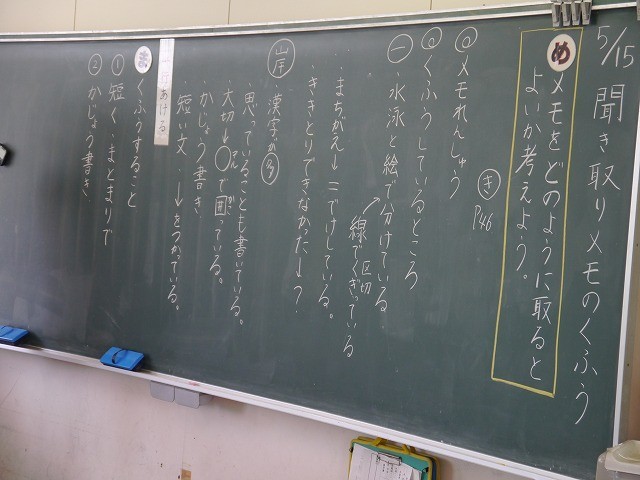 5/15 聞き取りメモのくふう
め メモをどのように取ると
よいか考えよう。
き P46
◎メモれんしゅう
◎くふうしているところ
一 ・水泳と絵で分けている
↗線でくぎっている
区切
・まちがえ→二でけしている。
・ききとりできなかった→?
岸 ・漢字が多
・思っていることも書いている。
・大切→○で囲っている。
・かじょう書き
・短い文 ・→をつかっている。
あける
ま くふうすること
① 短く、まとまりで
② かじょう書き